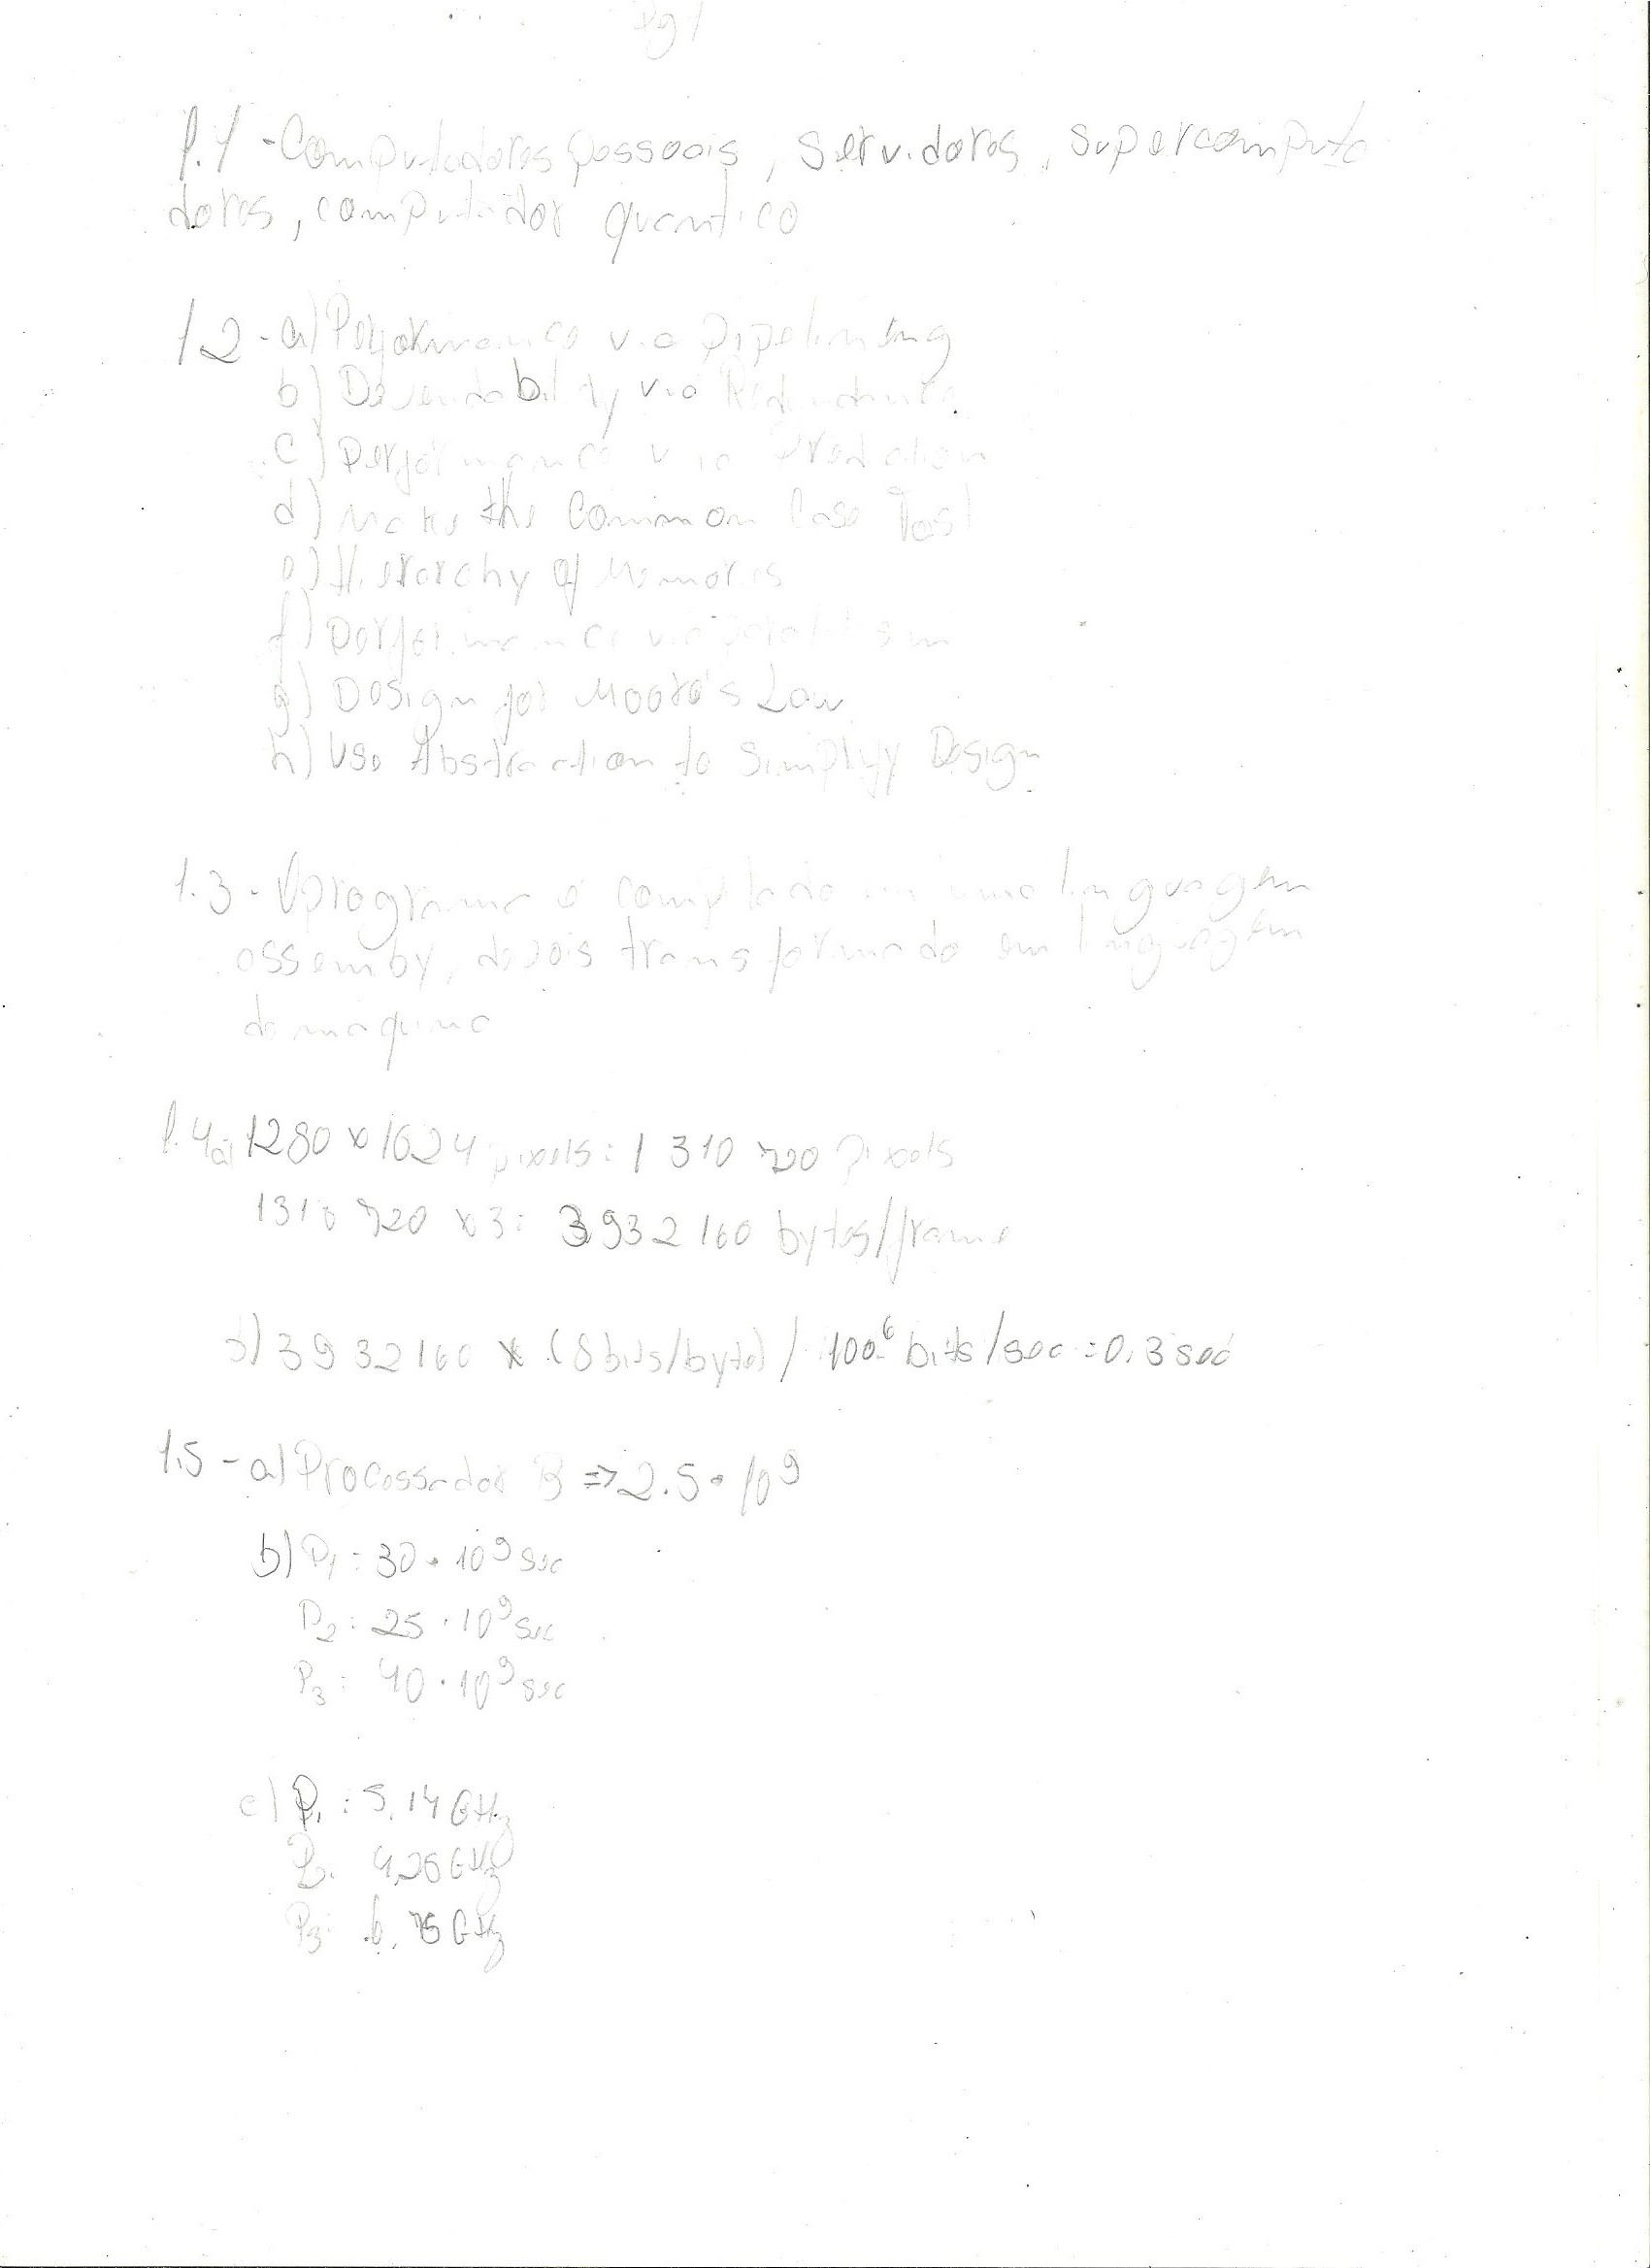 Pg 1
1.1 - Computadores pessoais, servidores, supercomputa
dores, computador quantico
1.2 - a) Performance via pipelining
b) Dependability via Redundance
c) performance via Prediction
d) Make the Common Case Fast
e) Hierarchy of Memories
f) performance via paralelism
g) Design for Moore's Law
h) Use Abstraction to Simplify Design
1.3 - O programa é compilado em uma linguagem
assemby, depois transformado em linguagem
de maquina
1.4 a) 1280 x 1024 pixels: 1 310 720 pixels
1310 720 x 3: 3932160 bytes/frame
b) 3932160 x (8bits/byte) / 100⁶ bits/sec = 0.3 sec
1.5 - a) Processador B => 2.5 • 10⁹
b) P₁: 30 • 10⁹ sec
P₂: 25 • 10⁹ sec
P₃: 40 • 10⁹ sec
c) P₁: 5.14 GHz
P₂. 4,26 GHz
P₃: 6.75 GHz